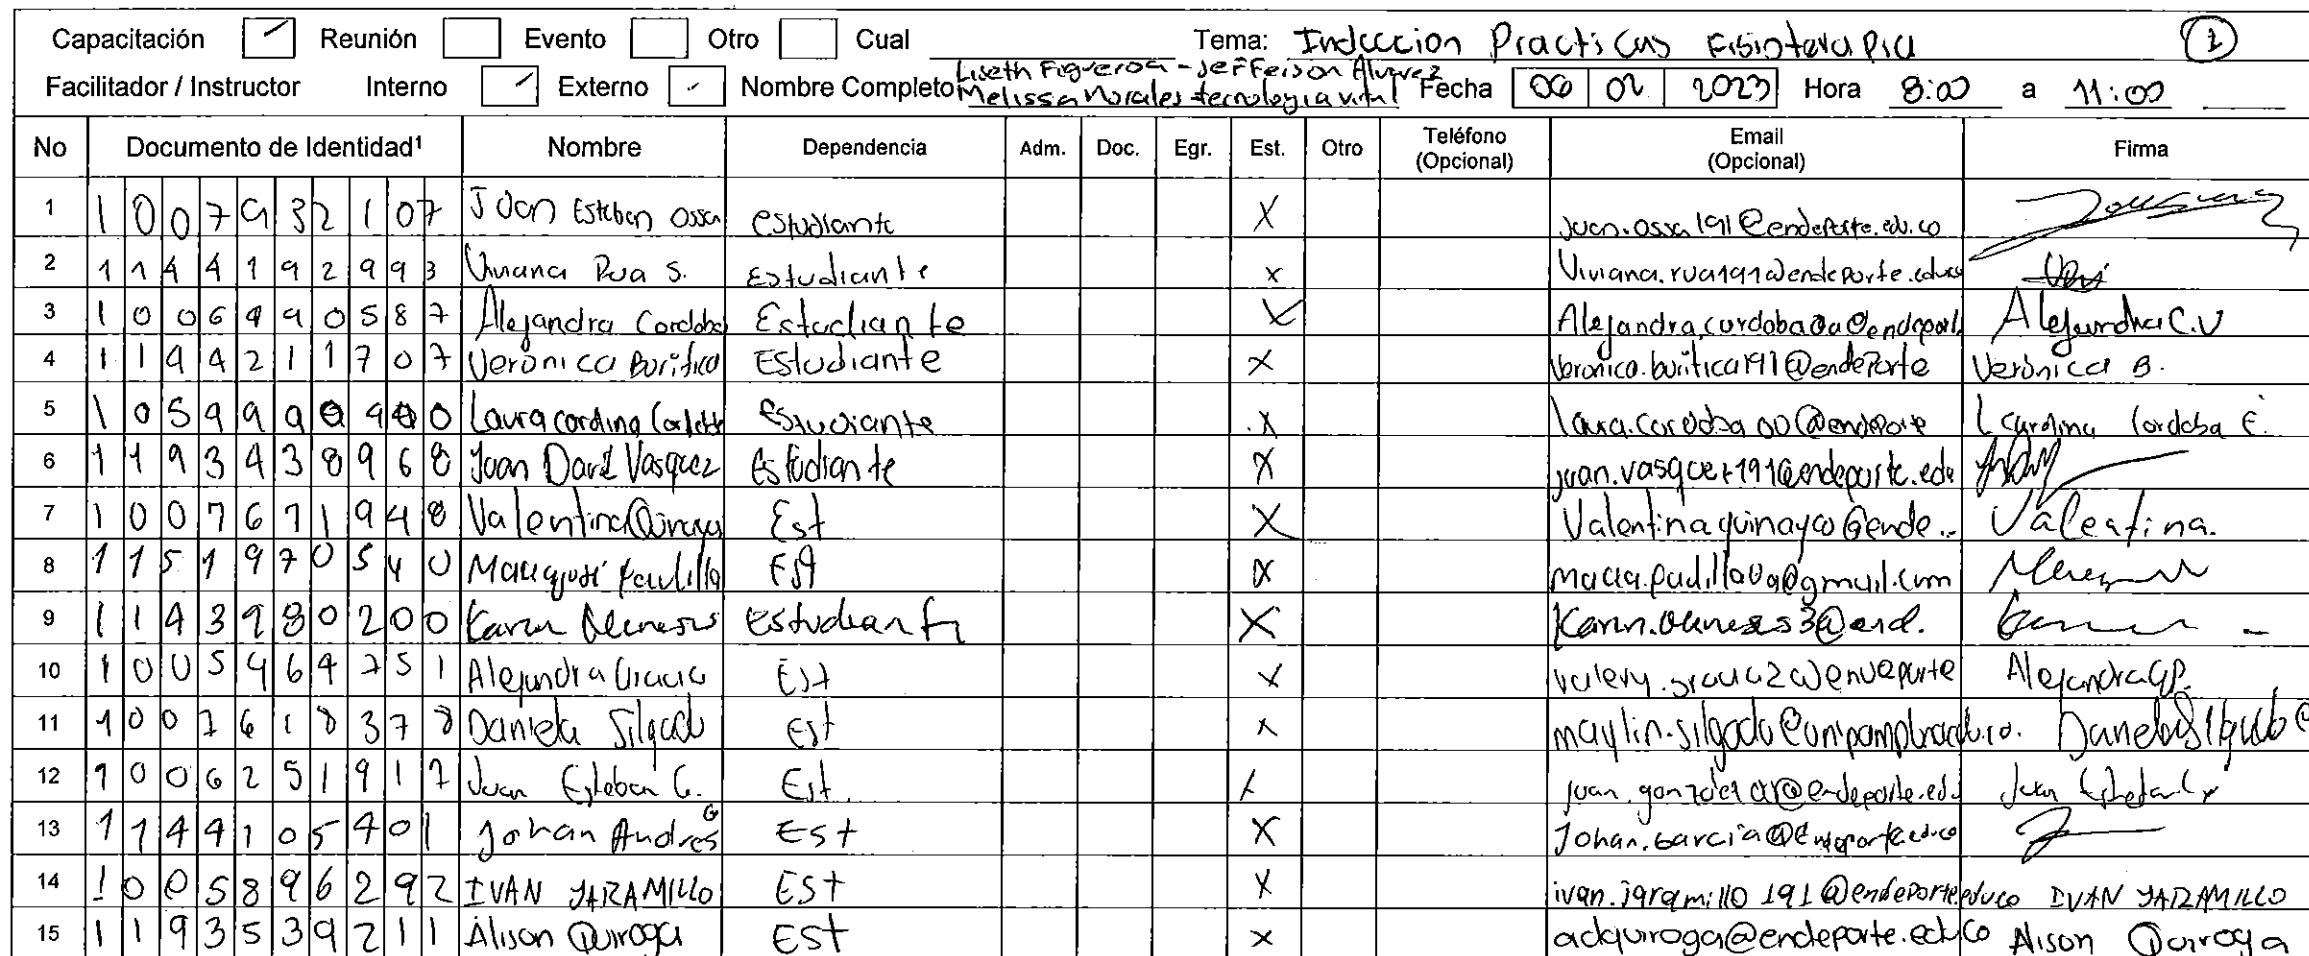 Capacitación Reunión Evento Otro Cual Tema: Induccion Practicas Fisioterapia 1
Liseth Figueroa - Jefferson Alvarez
Facilitador / Instructor Interno Externo Nombre Completo Melissa Morales tecnologia vital Fecha 06 02 2023 Hora 8:00 a 11:00
No Documento de Identidad¹ Nombre Dependencia Adm. Doc. Egr. Est. Otro Teléfono (Opcional) Email (Opcional) Firma
1 1007932107 Juan Esteban Ossa estudiante X juan.ossa191@endeporte.edu.co
2 1144192993 Viviana Rua S. Estudiante x Viviana.rua191@endeporte.edu.co
3 1006990587 Alejandra Cordoba Estudiante X Alejandra.cordoba Alejandra C.V
4 1194211707 Verónica Buritica Estudiante X Veronica.buritica191@endeporte Verónica B.
5 Laura Estudiante X Cordoba E.
6 1193438968 Juan David Vasquez Estudiante X juan.vasquez191@endeporte.edu
7 1007671948 Valentina Quinayo Est X Valentinaquinayo@ende.. Valentina.
8 1151970540 Est X
9 1143980200 Karen Meneses Estudiante X
10 1005464751 Alejandra Gracia Est X Alejandra GP.
11 1007618378 Daniela Silgado Est X maylin.silgado@unipamplona.edu.co. Daniela Silgado
12 1006251917 Juan Esteban G. Est. X
13 1144105401 Johan Andres G Est X Johan.Garcia@endeporte.edu.co
14 1005896292 IVAN JARAMILLO Est X ivan.jaramillo191@endeporte.edu.co IVAN JARAMILLO
15 1193539211 Alison Quiroga Est x adquiroga@endeporte.edu.co Alison Quiroga